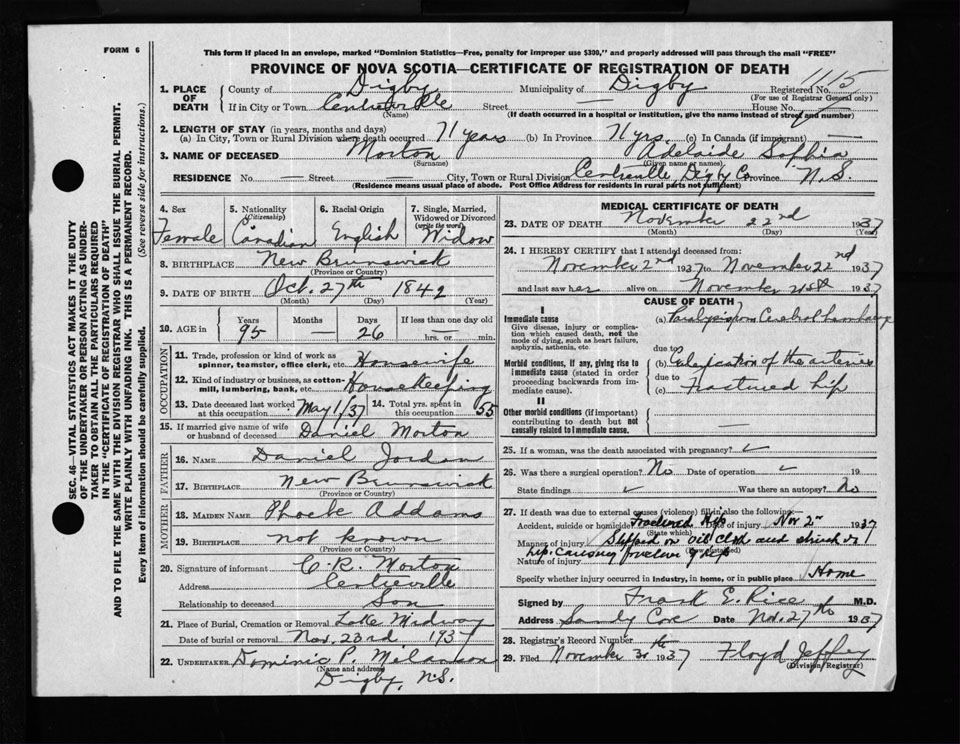 FORM 6
This form if placed in an envelope, marked "Dominion Statistics—Free, penalty for improper use $300," and properly addressed will pass through the mail "FREE"
PROVINCE OF NOVA SCOTIA—CERTIFICATE OF REGISTRATION OF DEATH
1. PLACE OF DEATH
County of Digby Municipality of Digby Registered No. 1115
(For use of Registrar General only)
If in City or Town Centreville Street — House No.
(Name) (If death occurred in a hospital or institution, give the name instead of street and number)
2. LENGTH OF STAY (in years, months and days)
(a) In City, Town or Rural Division where death occurred 71 years (b) In Province 71 yrs. (c) In Canada (if immigrant) —
3. NAME OF DECEASED Morton Adelaide Sophia
(Surname) (Given name or names)
RESIDENCE No. — Street — City, Town or Rural Division Centreville, Digby Co Province N.S.
(Residence means usual place of abode. Post Office Address for residents in rural parts not sufficient)
4. Sex Female
5. Nationality (Citizenship) Canadian
6. Racial Origin English
7. Single, Married, Widowed or Divorced (write the word) Widow
8. BIRTHPLACE New Brunswick
(Province or Country)
9. DATE OF BIRTH Oct. 27th 1842
(Month) (Day) (Year)
10. AGE in Years Months Days If less than one day old
95 — 26 hrs. or min.
OCCUPATION
11. Trade, profession or kind of work as spinner, teamster, office clerk, etc. Housewife
12. Kind of industry or business, as cotton-mill, lumbering, bank, etc. Housekeeping
13. Date deceased last worked at this occupation May 1/37
14. Total yrs. spent in this occupation 55
15. If married give name of wife or husband of deceased Daniel Morton
FATHER
16. NAME Daniel Jordan
17. BIRTHPLACE New Brunswick
(Province or Country)
MOTHER
18. MAIDEN NAME Phoebe Addams
19. BIRTHPLACE not known
(Province or Country)
20. Signature of informant C. R. Morton
Address Centreville
Relationship to deceased Son
21. Place of Burial, Cremation or Removal Lake Midway
Date of burial or removal Nov. 23rd 1937
22. UNDERTAKER Dominic P. Melanson
(Name and address)
Digby, N.S.
MEDICAL CERTIFICATE OF DEATH
23. DATE OF DEATH November 22nd 1937
(Month) (Day) (Year)
24. I HEREBY CERTIFY that I attended deceased from:
November 2nd 1937 to November 22nd 1937
and last saw her alive on November 21st 1937
CAUSE OF DEATH
I
Immediate cause
Give disease, injury or complication which caused death, not the mode of dying, such as heart failure, asphyxia, asthenia, etc.
(a) Paralysis from Cerebral
due to
Morbid conditions, if any, giving rise to immediate cause (stated in order proceeding backwards from immediate cause).
(b) of the arteries
due to
(c) Fractured hip
II
Other morbid conditions (if important) contributing to death but not causally related to immediate cause.
—
25. If a woman, was the death associated with pregnancy?
26. Was there a surgical operation? No Date of operation 19
State findings Was there an autopsy? No
27. If death was due to external causes (violence) fill in also the following:—
Accident, suicide or homicide Fractured hip Date of injury Nov 2nd 1937
(State which)
Manner of injury Slipped on oil cloth and struck on
(How sustained)
hip causing fracture of hip
Nature of injury
Specify whether injury occurred in industry, in home, or in public place Home
Signed by Frank E. Rice M.D.
Address Sandy Cove Date Nov. 27th 1937
28. Registrar's Record Number
29. Filed November 30th 1937 Floyd Jeffrey
(Division Registrar)
SEC. 46—VITAL STATISTICS ACT MAKES IT THE DUTY
OF THE UNDERTAKER OR PERSON ACTING AS UNDER-
TAKER TO OBTAIN ALL THE PARTICULARS REQUIRED
IN THE "CERTIFICATE OF REGISTRATION OF DEATH"
AND TO FILE THE SAME WITH THE DIVISION REGISTRAR WHO SHALL ISSUE THE BURIAL PERMIT.
WRITE PLAINLY WITH UNFADING INK. THIS IS A PERMANENT RECORD.
Every item of information should be carefully supplied. (See reverse side for instructions.)